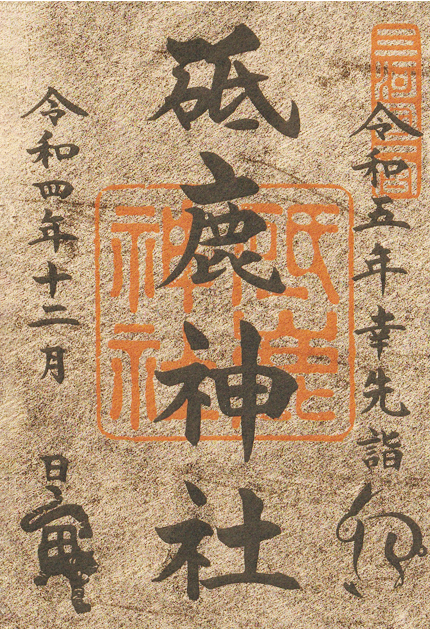 令和五年幸先詣
砥鹿神社
令和四年十二月
日
三河国一宮
砥鹿神社